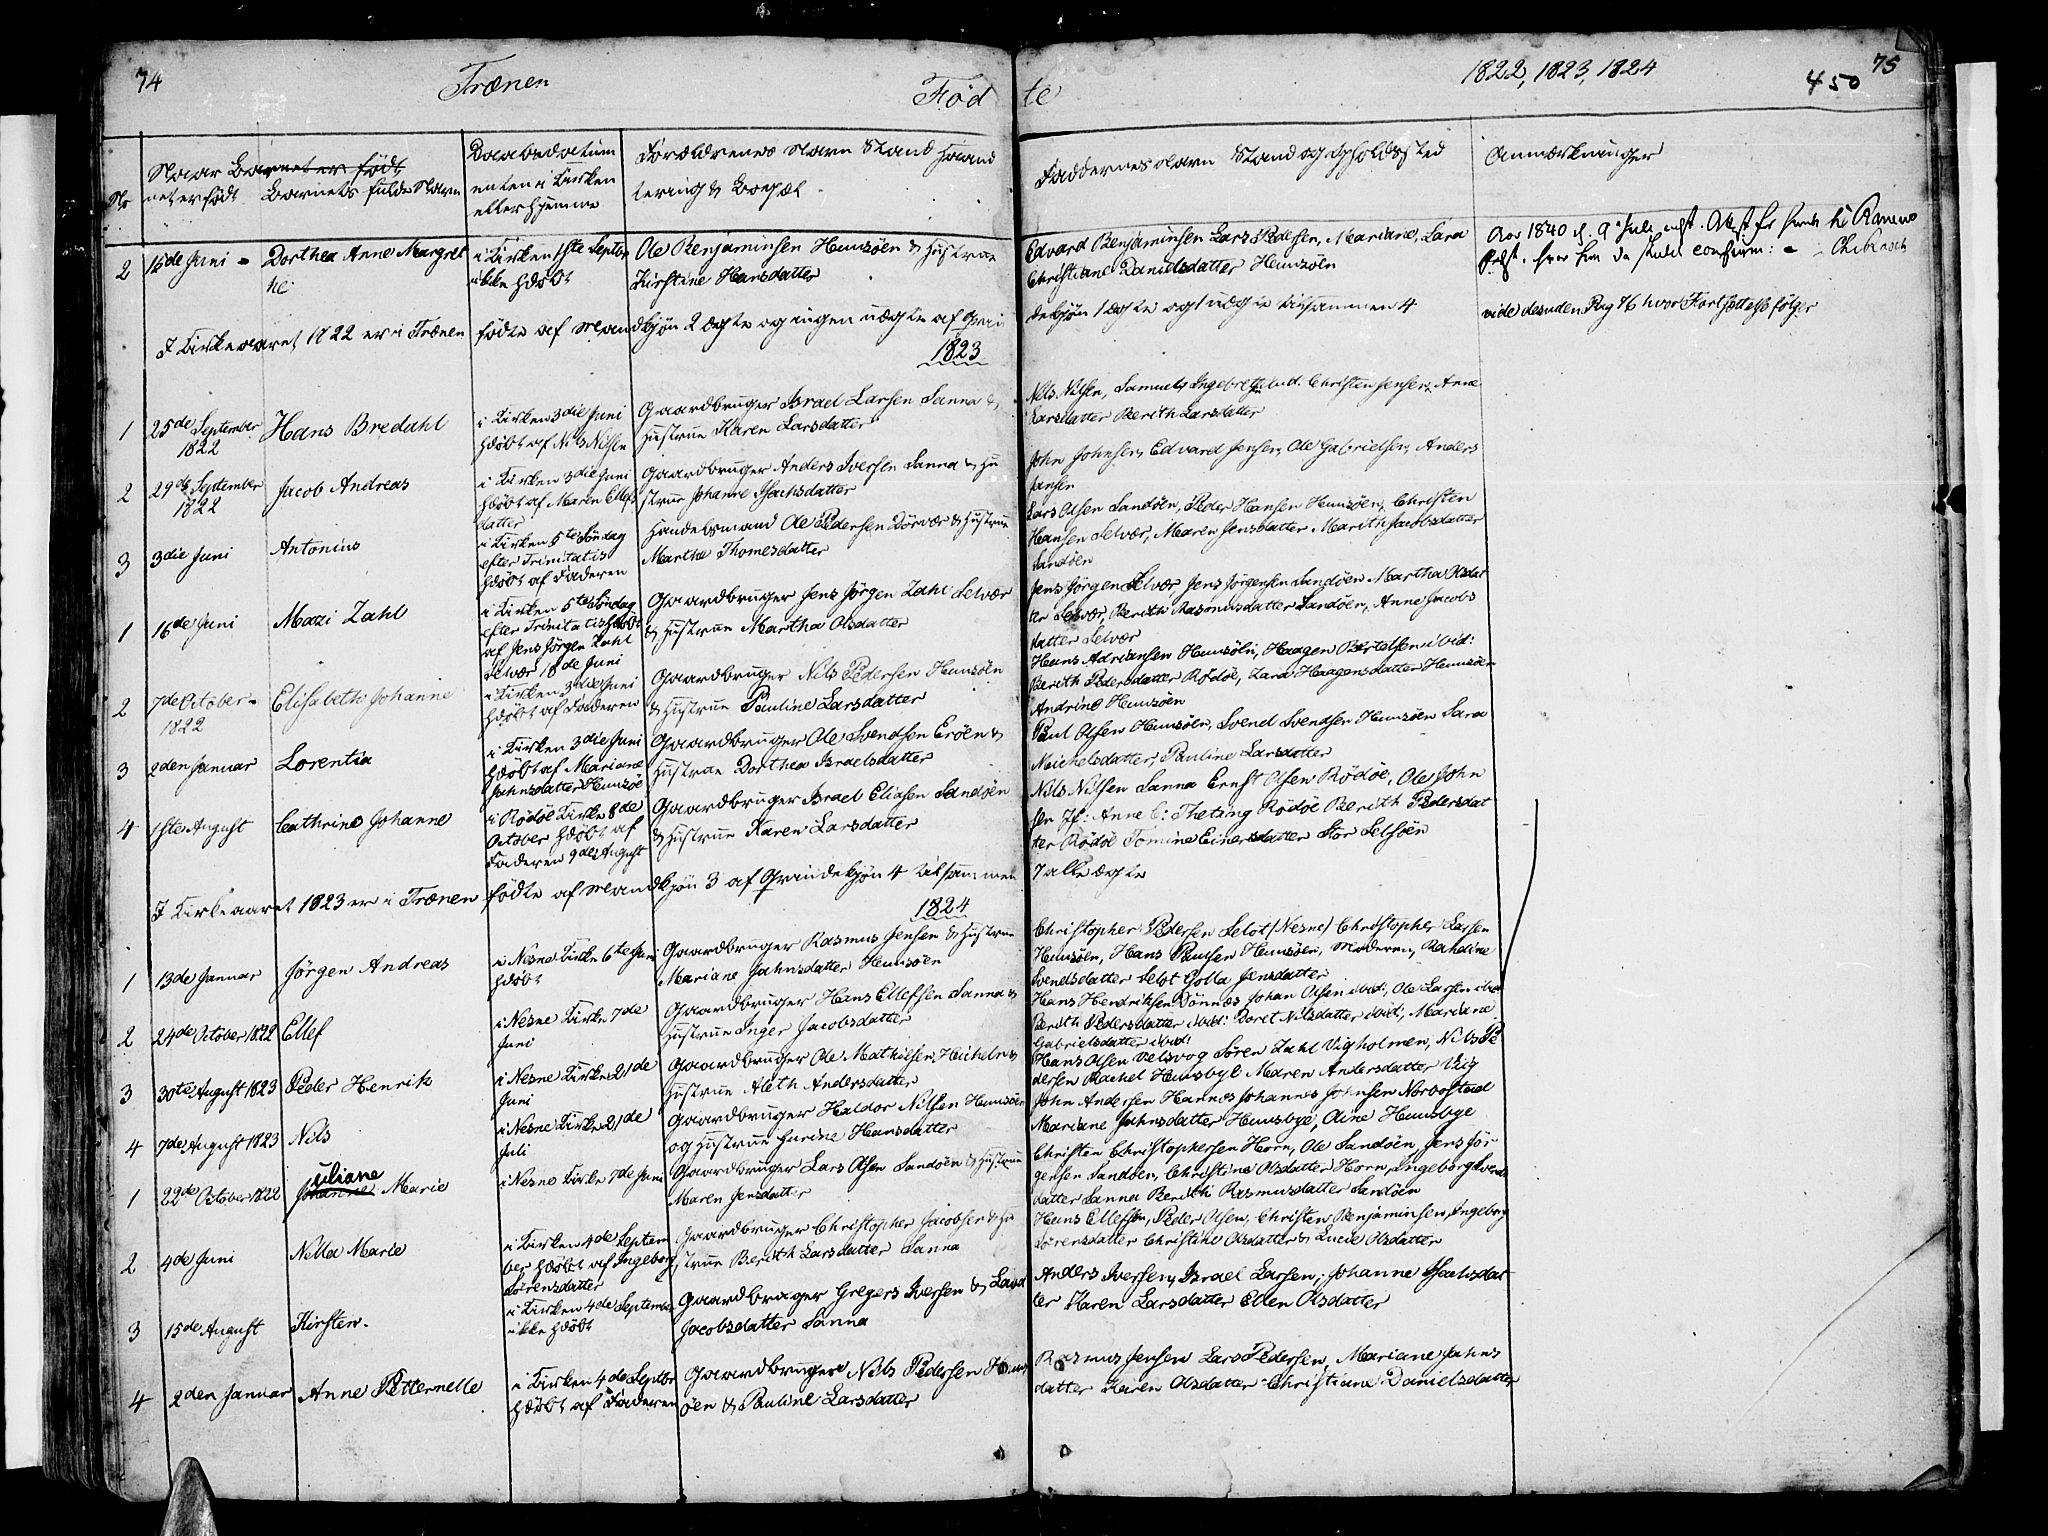 74
Trænen
Fød
te
1822, 1823, 1824
75
450
No
Naar Barnet er født
net er født
Barnets fulde Navn
Daabsdatum
enten i Kirken
eller hjemme
Forældrenes Navn Stand Haand
tering & Bopæl
Faddernes Navn Stand og Opholdssted
Anmærkninger
2
16de Juni
Dorthea Anne Margret
he
i Kirken 1ste Septbr
ikke hdøbt
Ole Benjaminsen Huusøen & Hustrue
Kirstine Hansdatter
Edvard Benjaminsen Lars Pedersen, Mariane, Sara
Christiane Danielsdatter Huusøen
Aar 1840 d. 9de Juli
vide desuden Pag 76 hvor Fortsættelse følger
I Kirkeaaret 1822 er i Trænen fødte af Mandkjøn 2 ægte og ingen uægte af Qvin
dekjøn 1 ægte og 1 uægte tilsammen 4
1823
1
25de September
1822
Hans Bredahl
i Kirken 3die Juni
hdøbt af Nils Nilsen
Gaardbruger Israel Larsen Sanna &
Hustrue Karen Larsdatter
Nils Nilsen, Samuels Ingebretsen ibid. Christen Jensen, Anne
Larsdatter Berith Larsdatter
2
29de September
1822
Jacob Andreas
i Kirken 3die Juni
hdøbt af Maren Ellefs
datter
Gaardbruger Anders Iversen Sanna & Hu
strue Johanne Isachsdatter
John Johnsen, Edvard Jensen, Ole Gabrielsen, Anders
Jansen
3
3die Juni
Antonius
i Kirken 5te Søndag
efter Trinitatis
hdøbt af Faderen
Handelsmand Ole Pedersen Dørvær & Hustrue
Martha Thomesdatter
Lars Olsen Sandøen, Peder Hansen Huusøen, Christen
Hansen Selvær, Maren Jensdatter Marith Jacobsdatter
Sandøen
1
16de Juni
Mazi Zahl
i Kirken 5te Søndag
efter Trinitatis hdøbt
af Jens Jørgen Zahl
Selvær 18de Juni
Gaardbruger Jens Jørgen Zahl Selvær
& Hustrue Martha Olsdatter
Jens Jørgen Selvær, Jens Jørgensen Sandøen Martha Olsdat
ter Selvær, Berith Rasmusdatter Sandøen, Anne Jacobs
datter Selvær
2
7de October
1822
Elisabeth Johanne
i Kirken 3die Juni
hdøbt af Faderen
Gaardbruger Nils Pedersen Huusøen
& Hustrue Pauline Larsdatter
Hans Adriansen Huusøen, Haagen Bertelsen ibid:
Berith Pedersdatter Rødøe, Zara Haagensdatter Huusøen
Andrine Huusøen
3
2den Januar
Lorentia
i Kirken 3die Juni
hdøbt af Mariane
Jahnsdatter Huusøe
Gaardbruger Ole Svendsen Erøen &
Hustrue Dorthea Israelsdatter
Paul Olsen Huusøen, Svend Svendsen Huusøen Sara
Michelsdatter, Pauline Larsdatter
4
1ste August
Cathrine Johanne
i Rødøe Kirke 8de
October hdøbt af
Faderen 9de August
Gaardbruger Israel Eliasen Sandøen
& Hustrue Karen Larsdatter
Nils Nilsen Sanna Ernst Olsen Rødøe, Ole John
sen Jf: Anne C: Theting Rødøe Berith Pedersdat
ter Rødøe Tomine Einersdatter Stor Selsøen
I Kirkeaaret 1823 er i Trænen fødte af Mandkjøn 3 af Qvindekjøn 4 tilsammen
7 alle ægte
1824
1
13de Januar
Jørgen Andreas
i Nesne Kirke 6te Juni
hdøbt
Gaardbruger Rasmus Jensen & Hustrue
Mariane Jahnsdatter Huusøen
Christopher Pedersen Seløt (Nesne) Christopher Larsen
Huusøen, Hans Paulsen Huusøen, Moderen, Rachline
Svendsdatter Seløt Golla Jensdatter
2
24de October 1822
Ellef
i Nesne Kirke 7de
Juni
Gaardbruger Hans Ellefsen Sanna &
Hustrue Inger Jacobsdatter
Hans Hendriksen Dønnæs Johan Olsen ibid:, Ole Larsen ibid
Berith Pedersdatter ibid: Doret Nilsdatter ibid, Mariane
Gabrielsdatter ibid:
3
30te August 1823
Peder Henrik
i Nesne Kirke 21de
Juni
Gaardbruger Ole Mathisen &
Hustrue Aleth Andersdatter
Hans Olsen Velsvog Søren Zahl Vigholmen, Nils Pe
dersen Rachel Huusbye Maren Andersdatter Vig
4
7de August 1823
Nils
i Nesne Kirke 21de
Juli
Gaardbruger Haldor Nilsen Huusøen
og Hustrue Hansdatter
John Andersen Hannes Johannes Johnsen
Mariane Jahnsdatter Huusbye, Aine Huusbye
1
22de October 1822
uliane
Johanne Marie
i Nesne Kirke 7de Juni
Gaardbruger Lars Olsen Sandøen & Hustrue
Maren Jensdatter
Christen Christophersen Horn, Ole Sandøen, Jens Jør
gensen Sandøen, Christine Olsdatter Horn, Ingeborg Svends
datter Sanna Berith Rasmusdatter Sandøen
2
4de Juni
Nella Marie
i Kirken 4de Septem
ber hdøbt af Ingeborg
Sørensdatter
Gaardbruger Christopher Jacobsen & Hu
strue Berith Larsdatter Sanna
Hans Ellefsen, Peder Olsen, Christen Benjaminsen, Ingeborg
Sørensdatter Christine Olsdatter & Lucie Olsdatter
3
15de August
Kirsten
i Kirken 4de September
ikke hdøbt
Gaardbruger Gregers Iversen &
Jacobsdatter Sanna
Anders Iversen, Israel Larsen, Johanne Isachsdat
ter Karen Larsdatter Ellen Olsdatter
4
2den Januar
Anne Petternelle
i Kirken 4de Septbr
hdøbt af Faderen
Gaardbruger Nils Pedersen Huus
øen & Pauline Larsdatter
Rasmus Jensen Lars Pedersen, Mariane Jahns
datter Karen Olsdatter Christiane Danielsdatter